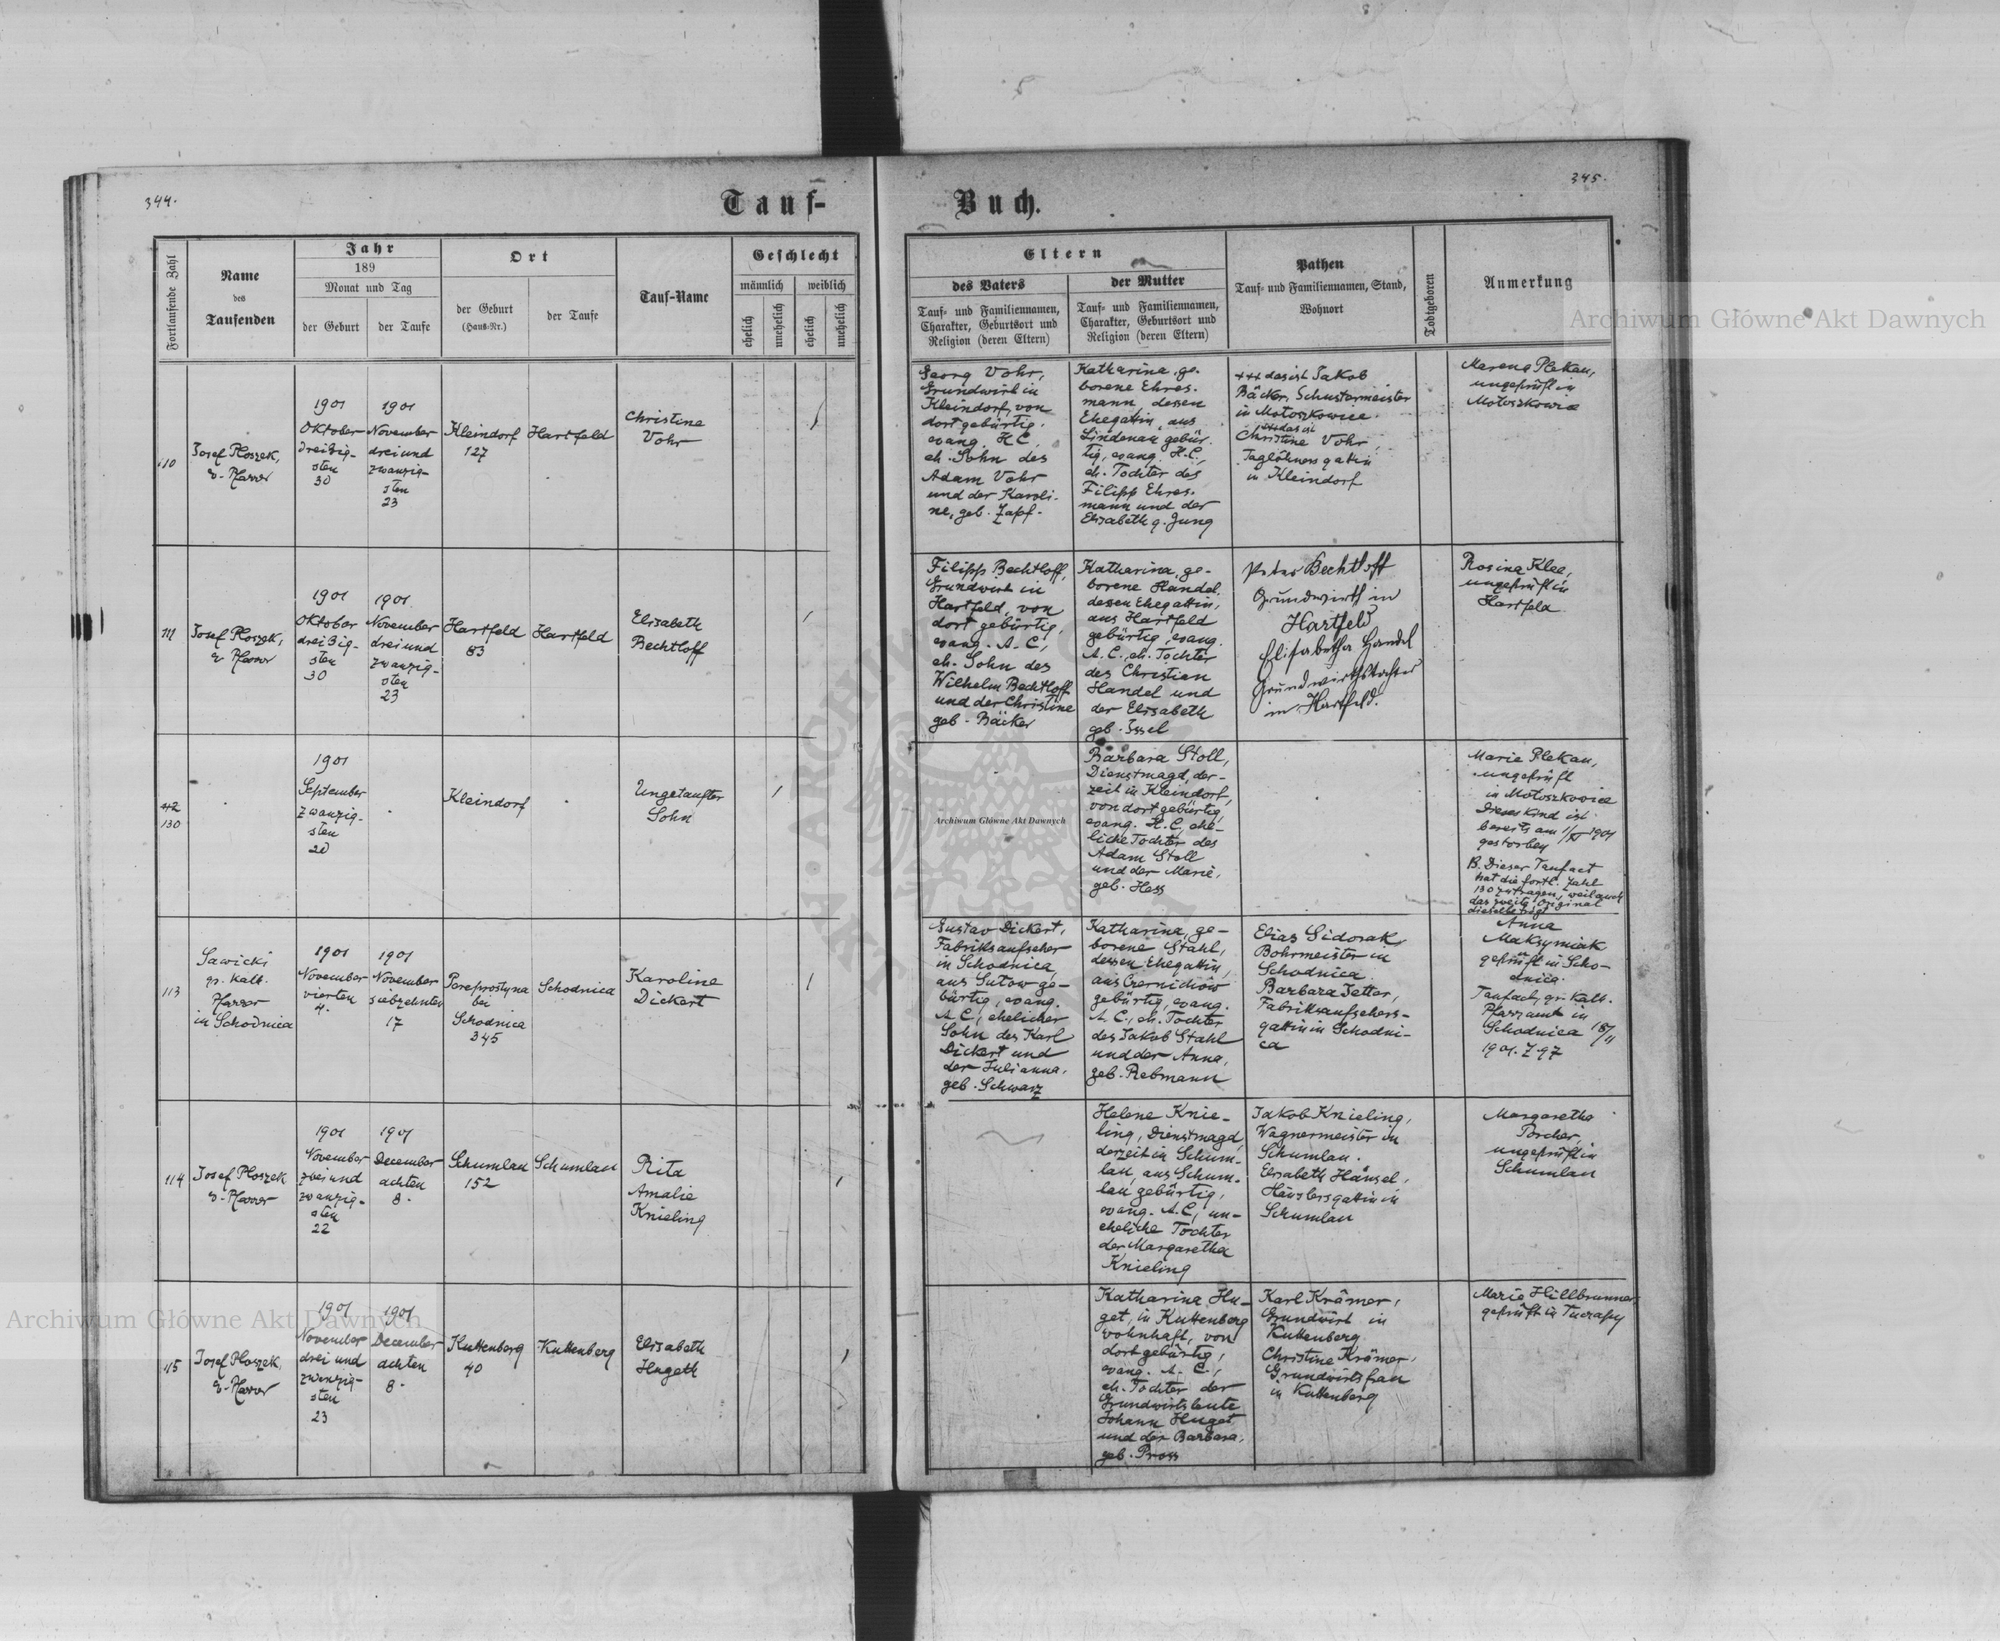 344.
Tauf-
Buch.
345.
Fortlaufende Zahl
Name
des
Taufenden
Jahr
189
Monat und Tag
der Geburt
der Taufe
Ort
der Geburt
(Haus-Nr.)
der Taufe
Tauf-Name
Geschlecht
männlich
weiblich
ehelich
unehelich
ehelich
unehelich
Eltern
des Vaters
Tauf- und Familiennamen,
Charakter, Geburtsort und
Religion (deren Eltern)
der Mutter
Tauf- und Familiennamen,
Charakter, Geburtsort und
Religion (deren Eltern)
Pathen
Tauf- und Familiennamen, Stand,
Wohnort
Todtgeboren
Anmerkung
110
Josef Ploszek,
e. Pfarrer
1901
Oktober
dreißig-
sten
30
1901
November
drei und
zwanzig-
sten
23
Kleindorf
127
Hartfeld
Christine
Vohr
Georg Vohr,
Grundwirt in
Kleindorf, von
dort gebürtig,
evang. H.C.
eh. Sohn des
Adam Vohr
und der Karoli-
ne, geb. Zapf.
Katharina, ge-
borene Ehres-
mann, dessen
Ehegattin, aus
Lindenau gebür-
tig, evang. H.C.,
eh. Tochter des
Filipp Ehres-
mann und der
Elisabeth g. Jung
+++ das ist Jakob
Bäcker, Schustermeister
in Mołoszkowice.
+++ das ist
Christine Vohr,
Taglöhnersgattin
in Kleindorf
Plekan,
ungeprüft in
Mołoszkowice
111
Josef Ploszek,
e. Pfarrer
1901
Oktober
dreißig-
sten
30
1901.
November
drei und
zwanzig-
sten
23
Hartfeld
83
Hartfeld
Elisabeth
Bechtloff
Filipp Bechtloff,
Grundwirt in
Hartfeld, von
dort gebürtig,
evang. A.C.,
eh. Sohn des
Wilhelm Bechtloff
und der Christine
geb. Bäcker
Katharina, ge-
borene Handel,
dessen Ehegattin,
aus Hartfeld
gebürtig, evang.
A.C., eh. Tochter
des Christian
Handel und
der Elisabeth
geb. Issel
Peter Bechtloff
Grundwirth in
Hartfeld
Elisabetha Handel
Grundwirthstochter
in Hartfeld.
Rosina Klee,
ungeprüft in
Hartfeld.
130
1901
September
zwanzig-
sten
20
Kleindorf
Ungetaufter
Sohn
Barbara Stoll,
Dienstmagd, der-
zeit in Kleindorf,
von dort gebürtig,
evang. H.C., ehe-
liche Tochter des
Adam Stoll
und der Marie,
geb. Hess
Marie Plekan,
ungeprüft
in Mołoszkowice
Dieses Kind ist
bereits am 1/XI 1901
gestorben
Dieser Taufact
hat die fortl. Zahl
130 zu tragen, weil auch
das zweite Original
dieselbe trägt
113
Sawicki
gr. kath.
Pfarrer
in Schodnica
1901
November
vierten
4.
1901
November
siebzehnten
17
Pereprostyna
bei
Schodnica
345
Schodnica
Karoline
Dickert
Gustav Dickert,
Fabriksaufseher
in Schodnica,
aus Gutow ge-
bürtig, evang.
A.C., ehelicher
Sohn des Karl
Dickert und
der Julianna,
geb. Schwarz
Katharina, ge-
borene Stahl,
dessen Ehegattin,
aus Czernichów
gebürtig, evang.
A.C., eh. Tochter
des Jakob Stahl
und der Anna,
geb. Rebmann
Elias Sidorak,
Bohrmeister in
Schodnica.
Barbara Tetter,
Fabriksaufsehers-
gattin in Schodni-
ca
Anna
Maksymiak
geprüft in Scho-
dnica.
Taufact, gr. kath.
Pfarramt in
Schodnica 18/11
1901. Z. 97
114
Josef Ploszek
e. Pfarrer
1901
November
zwei und
zwanzig-
sten
22
1901
December
achten
8.
Schumlau
152
Schumlau
Rita
Amalie
Knieling
Helene Knie-
ling, Dienstmagd,
derzeit in Schum-
lau, aus Schum-
lau gebürtig,
evang. A.C., un-
eheliche Tochter
der Margaretha
Knieling
Jakob Knieling,
Wagnermeister in
Schumlau.
Elisabeth Hänsel,
Häuslersgattin in
Schumlau
Margaretha
Porcher,
ungeprüft in
Schumlau
115
Josef Ploszek,
e. Pfarrer
1901
November
drei und
zwanzig-
sten
23
1901
December
achten
8.
Kuttenberg
40
Kuttenberg
Elisabeth
Hugeth
Katharina Hu-
get, in Kuttenberg
wohnhaft, von
dort gebürtig,
evang. A.C.,
eh. Tochter der
Grundwirtsleute
Johann Huget
und der Barbara,
geb. Pross
Karl Krämer,
Grundwirt in
Kuttenberg.
Christine Krämer,
Grundwirtsfrau
in Kuttenberg
Marie Hillbrunner,
geprüft in Tuczapy
Archiwum Główne Akt Dawnych
Archiwum Główne Akt Dawnych
Archiwum Główne Akt Dawnych